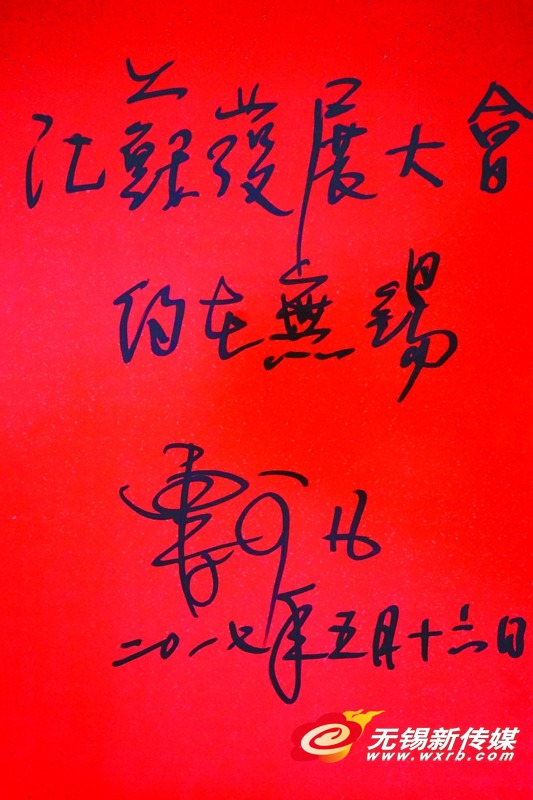 江蘇發展大會
约在無錫
曹可凡
二〇一七年五月十六日
无锡新传媒
www.wxrb.com